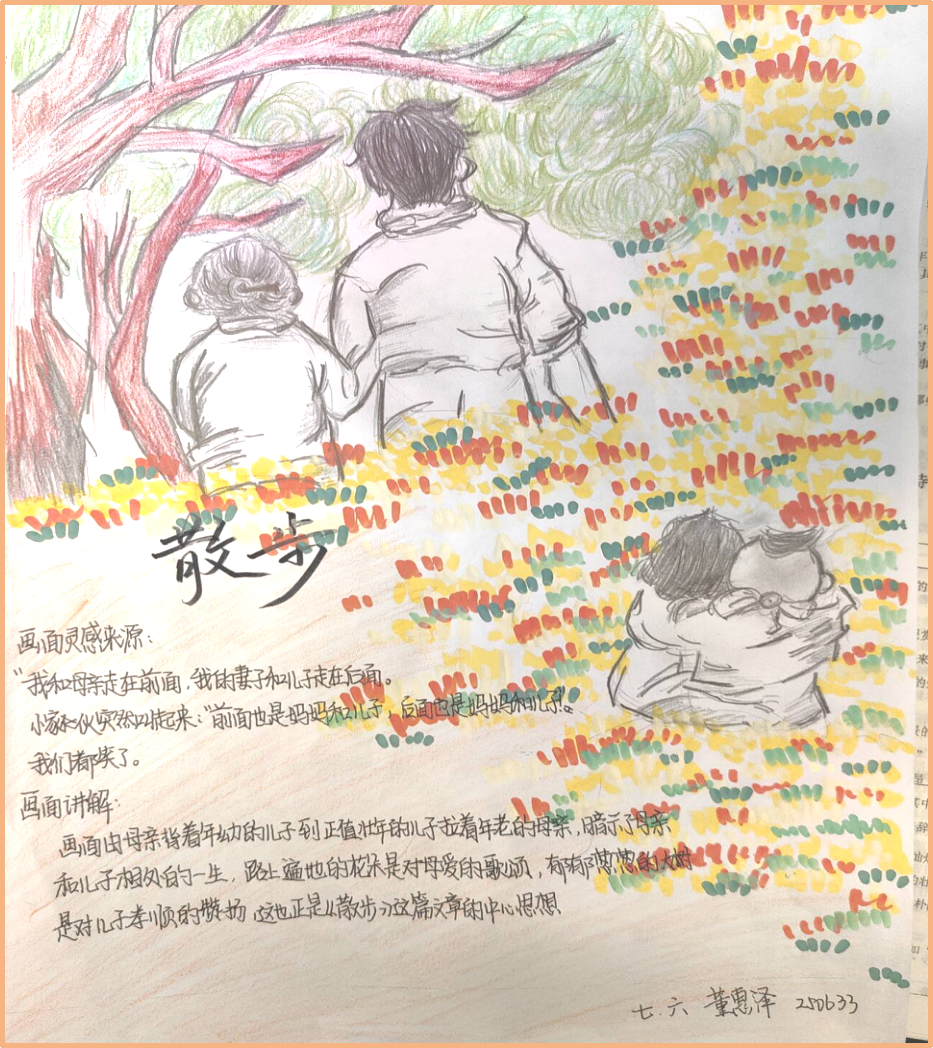 散步
画面灵感来源：
"我和母亲走在前面，我的妻子和儿子走在后面。
小家伙突然叫起来："前面也是妈妈和儿子，后面也是妈妈和儿子!"。
我们都笑了。
画面讲解：
画面由母亲背着年幼的儿子到正值壮年的儿子拉着年老的母亲，暗示了母亲
和儿子相处的一生，路上遍地的花朵是对母爱的歌颂，郁郁葱葱的大树
是对儿子孝顺的赞扬 这也正是《散步》这篇文章的中心思想
七.六 董惠泽 250633